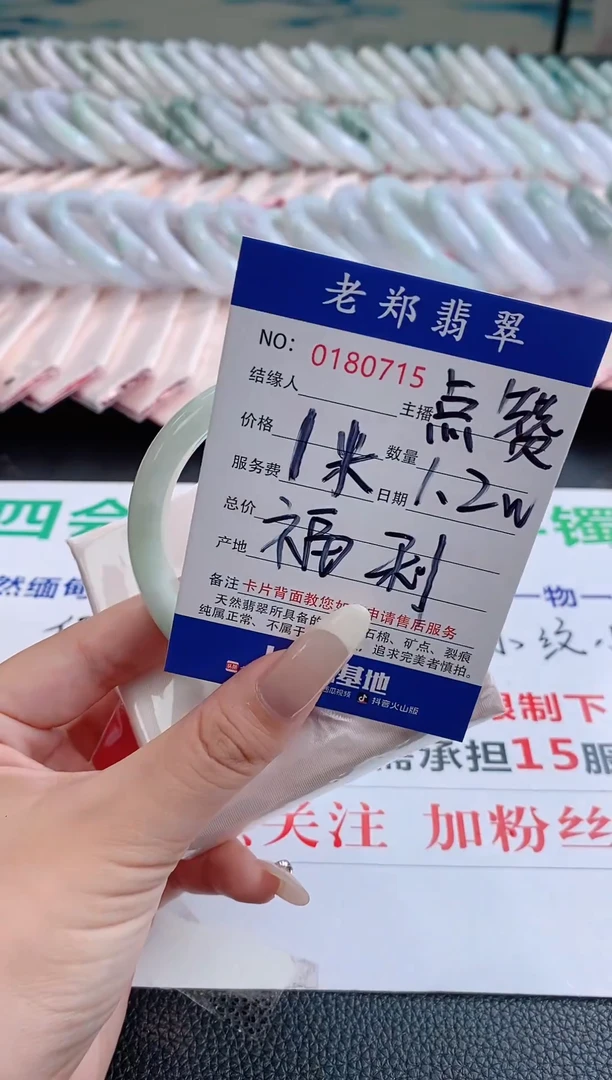 老郑翡翠
NO: 0180715
结缘人 主播
点赞
价格 数量
服务费 日期
1米 1.2w
总价
产地
福利
备注 卡片背面教您如 申请售后服务
天然翡翠所具备的 石棉、矿点、裂痕
纯属正常、不属于 追求完美者慎拍。
基地
西瓜视频 抖音火山版
四会
镯
然缅甸
物
小纹
限制下
需承担15服
关注 加粉丝